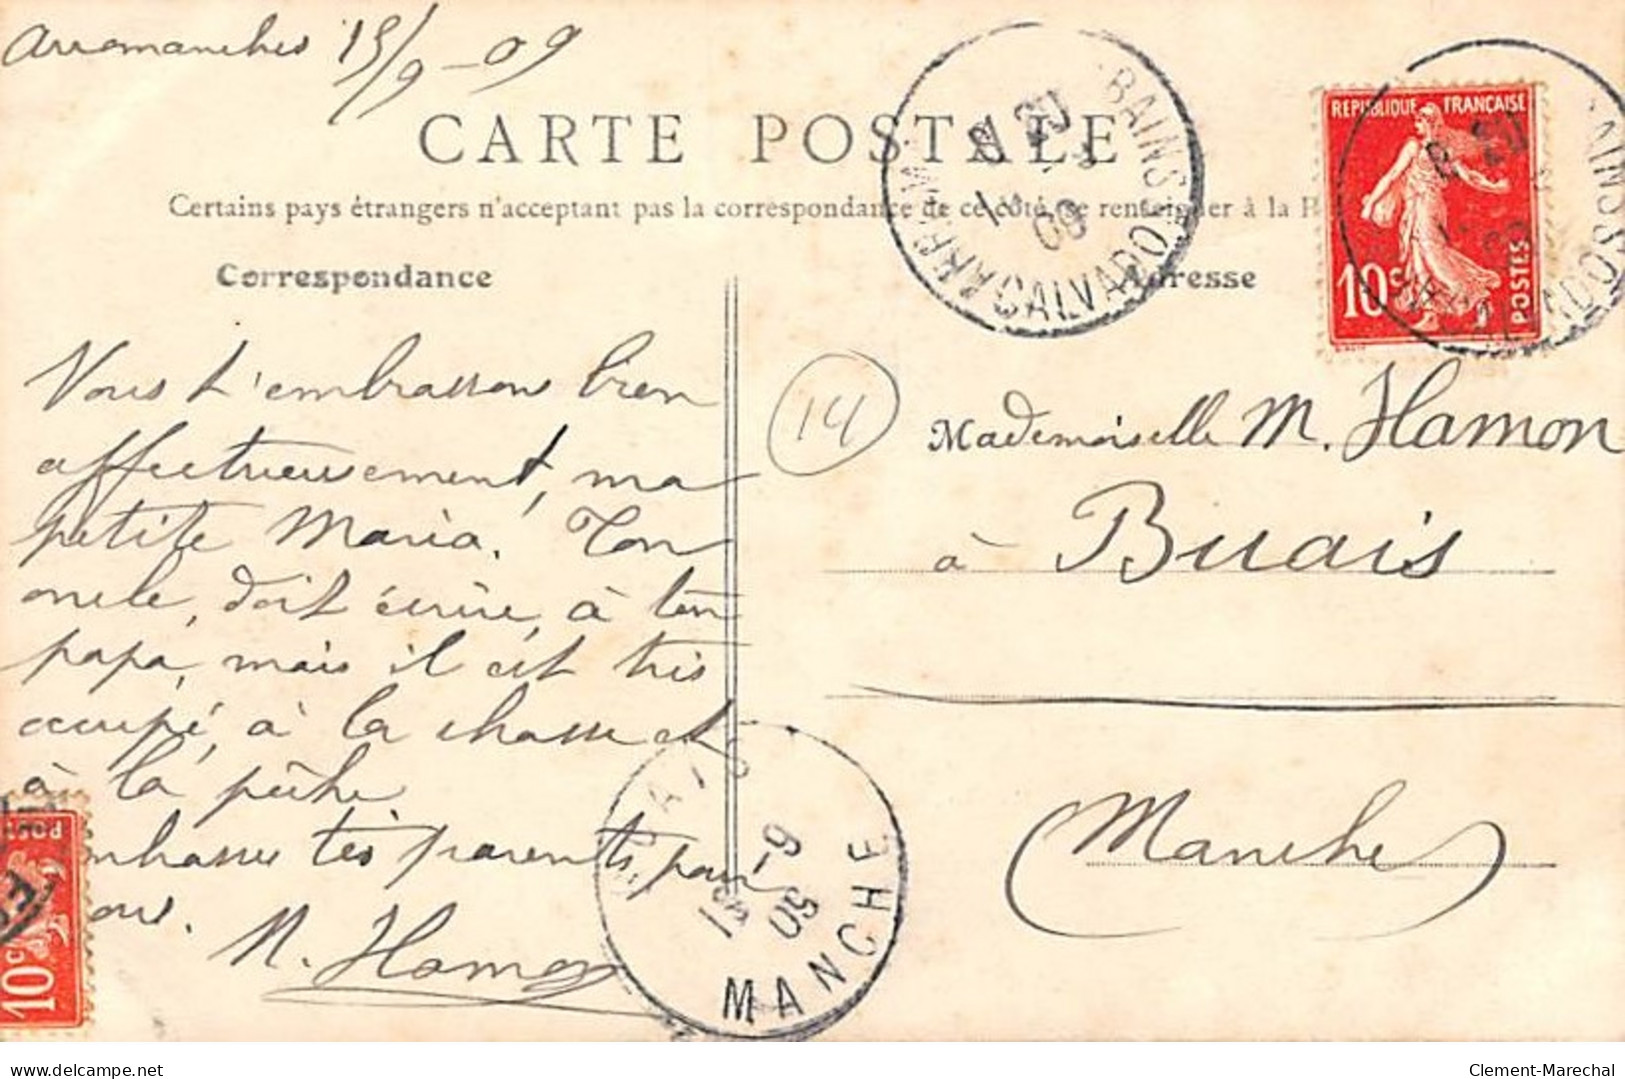 Arromanches 15/9-09
CARTE POSTALE
Certains pays étrangers n'acceptent pas la correspondance de ce côté, se renseigner à la
Correspondance
Adresse
BAINS
CALVADOS
09
REPUBLIQUE FRANÇAISE
10c
POSTES
BAINS
14
Nous t'embrassons bien
affectueusement, ma
petite Maria. Ton
oncle, doit écrire, à ton
papa, mais il est très
occupé, à la chasse et
à la pêche.
embrasse tes parents pour
nous.
N. Hamon
Mademoiselle M. Hamon
à Buais
Manche
BUAIS
-9
09
MANCHE
10c
delcampe.net
Clement-Marechal